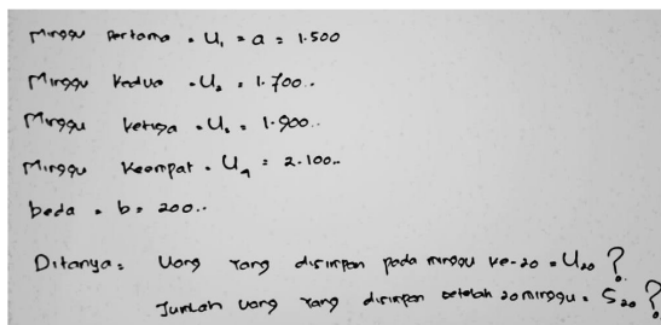 Minggu Pertama = U₁ = a = 1.500
Minggu Kedua = U₂ = 1.700..
Minggu Ketiga = U₃ = 1.900..
Minggu Keempat = U₄ = 2.100..
beda = b = 200..
Ditanya = Uang yang disimpan pada minggu ke-20 = U₂₀ ?
Jumlah uang yang disimpan setelah 20 minggu = S₂₀ ?